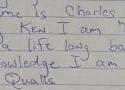 me is Charles
Ken I am
a life long ba
owledge I am
Qualls